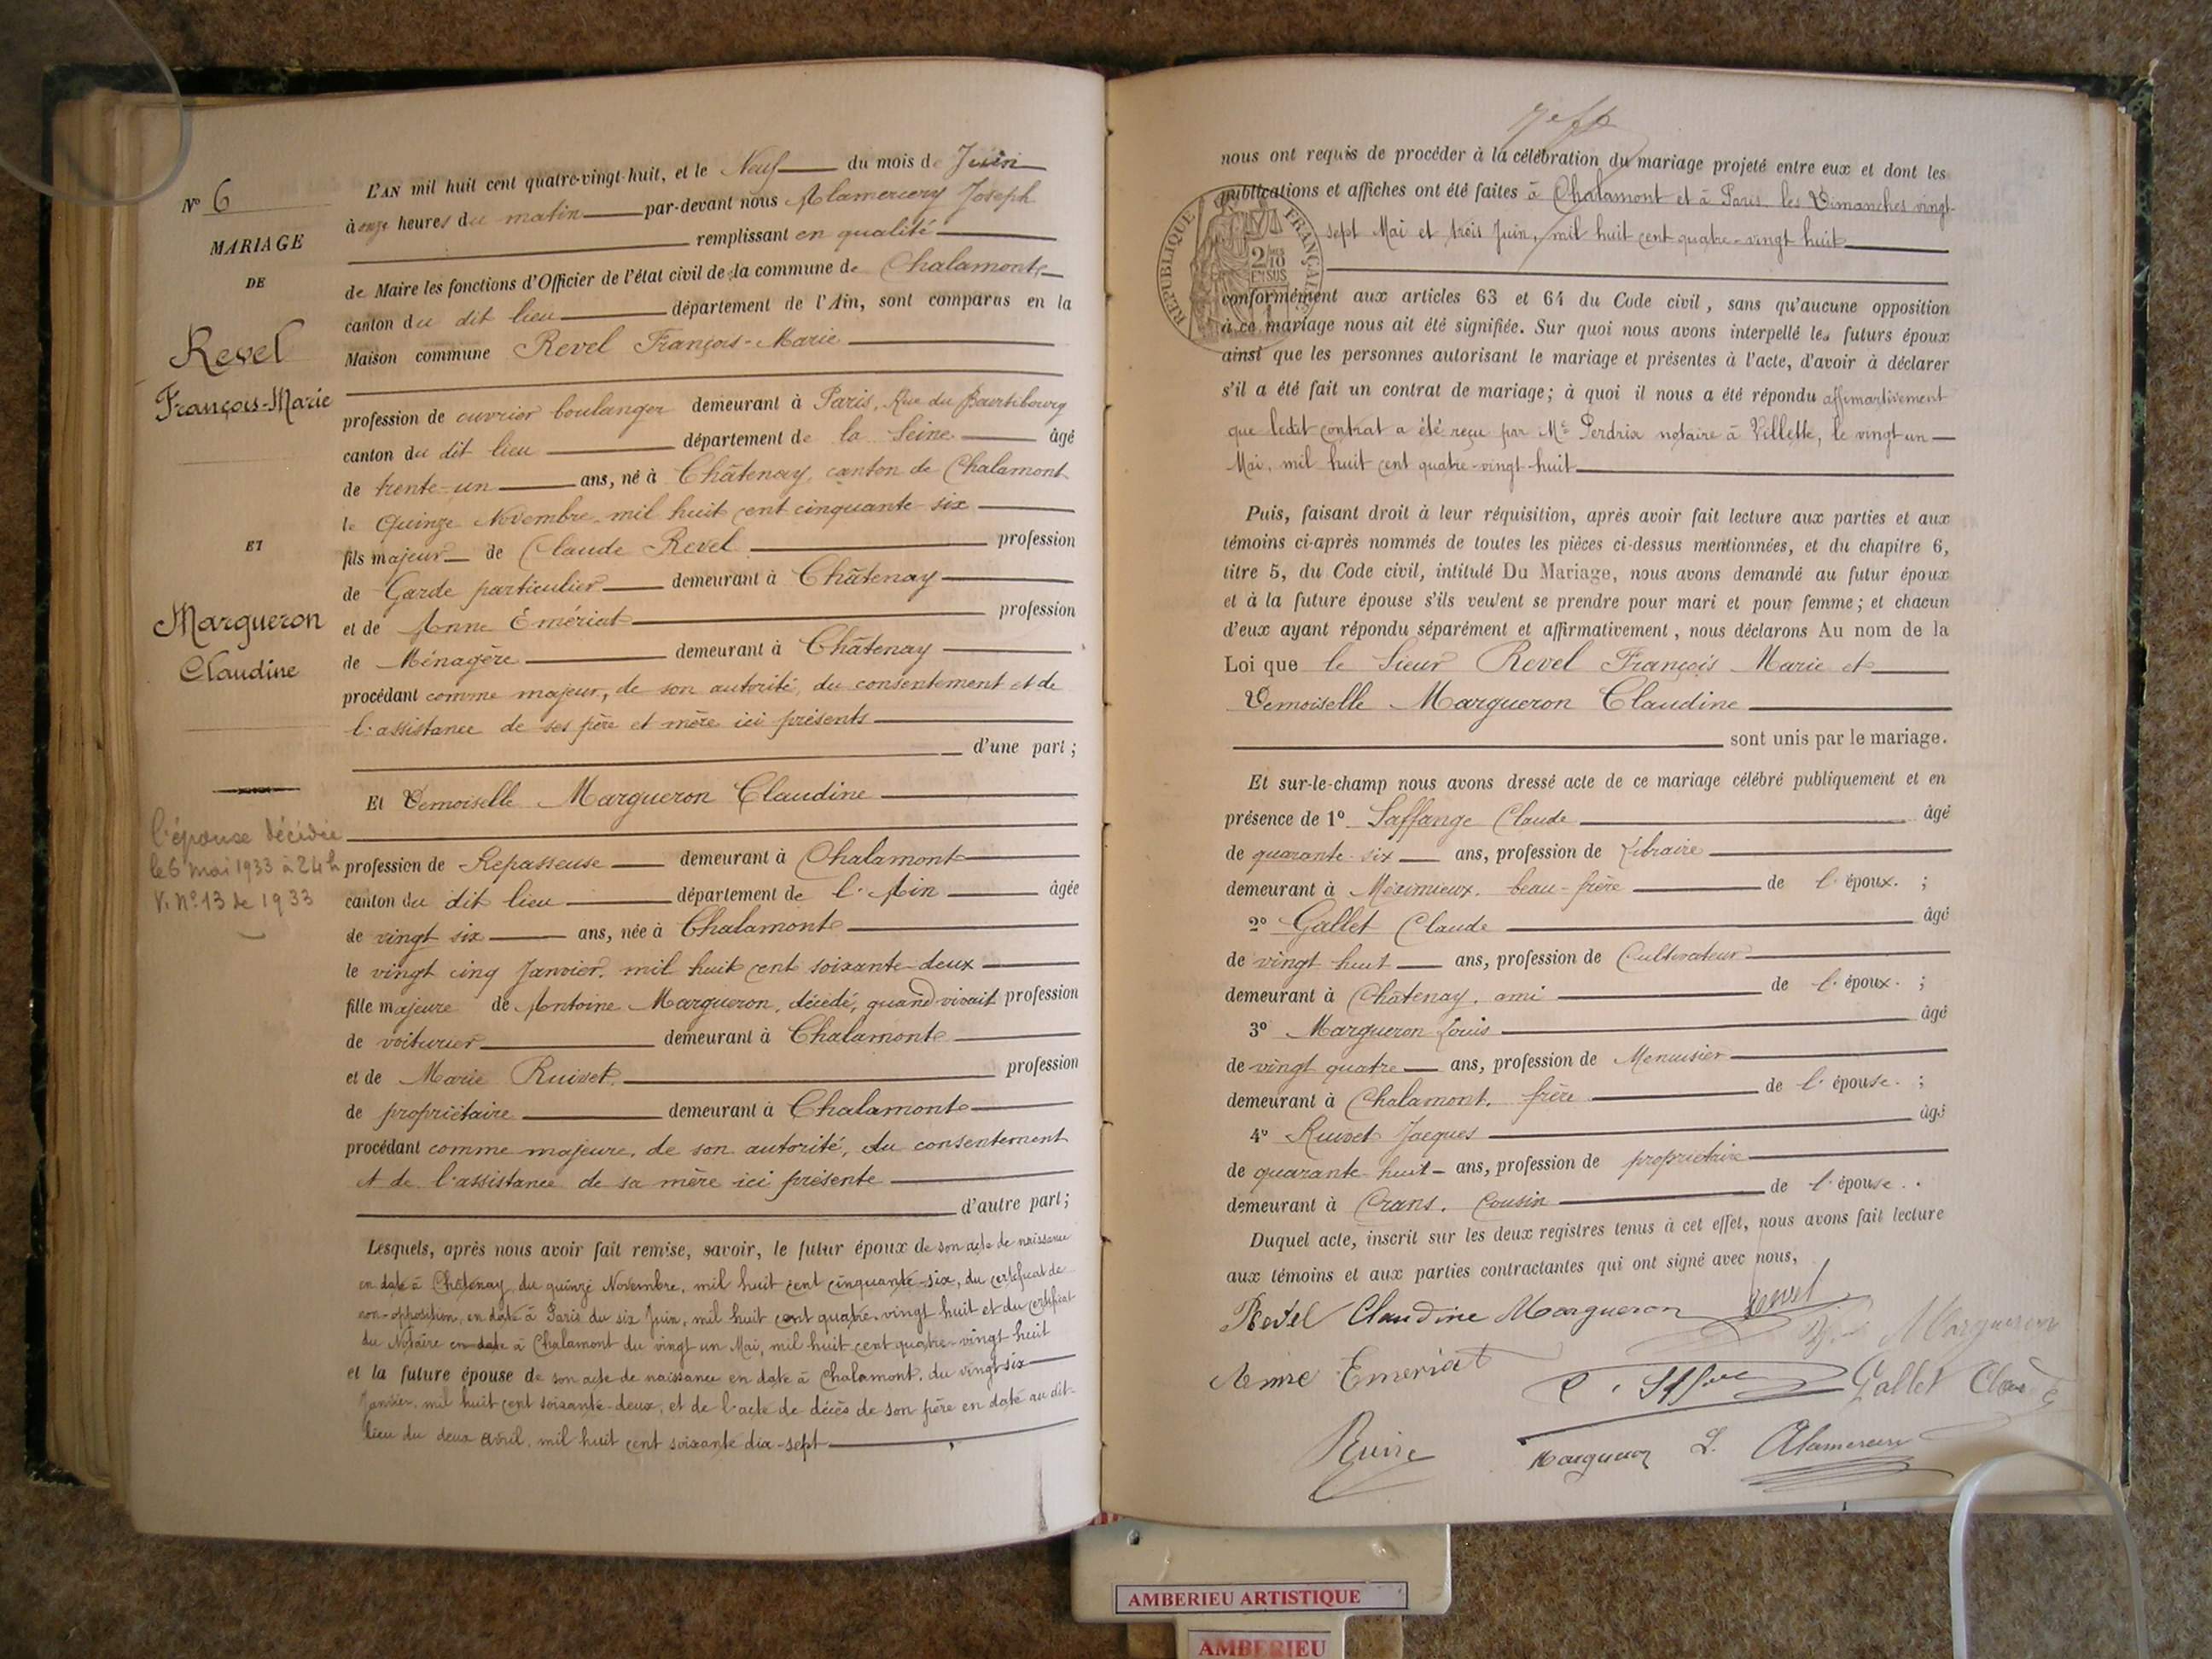 N° 6
MARIAGE
DE
Revel
François-Marie
ET
Margueron
Claudine
l'épouse décédée
le 6 mai 1933 à 24 h
V. N° 13 de 1933
L'AN mil huit cent quatre-vingt-huit, et le Neuf du mois de Juin
à onze heures du matin par-devant nous Alamercery Joseph
remplissant en qualité
de Maire les fonctions d'Officier de l'état civil de la commune de Chalamont
canton du dit lieu département de l'Ain, sont comparus en la
Maison commune Revel François-Marie
profession de ouvrier boulanger demeurant à Paris, Rue du Bourtibourg
canton du dit lieu département de la Seine âgé
de trente-un ans, né à Châtenay, canton de Chalamont
le Quinze Novembre mil huit cent cinquante-six
fils majeur de Claude Revel profession
de Garde particulier demeurant à Châtenay
et de Anne Emériat profession
de Ménagère demeurant à Châtenay
procédant comme majeur, de son autorité, du consentement et de
l'assistance de ses père et mère ici présents
d'une part ;
Et Demoiselle Margueron Claudine
profession de Repasseuse demeurant à Chalamont
canton du dit lieu département de l'Ain âgée
de vingt six ans, née à Chalamont
le vingt cinq Janvier, mil huit cent soixante-deux
fille majeure de Antoine Margueron, décédé, quand vivait profession
de voiturier demeurant à Chalamont
et de Marie Ruivet profession
de propriétaire demeurant à Chalamont
procédant comme majeure, de son autorité, du consentement
et de l'assistance de sa mère ici présente
d'autre part ;
Lesquels, après nous avoir fait remise, savoir, le futur époux de son acte de naissance
en date à Châtenay du quinze Novembre, mil huit cent cinquante-six, du certificat de
non-opposition, en date à Paris du six Juin, mil huit cent quatre-vingt huit et du certificat
du Notaire en date à Chalamont du vingt un Mai, mil huit cent quatre-vingt huit
et la future épouse de son acte de naissance en date à Chalamont, du vingt six
Janvier, mil huit cent soixante-deux, et de l'acte de décès de son père en date au dit-
lieu du deux Avril, mil huit cent soixante dix-sept
nous ont requis de procéder à la célébration du mariage projeté entre eux et dont les
publications et affiches ont été faites à Chalamont et à Paris les Dimanches vingt-
sept Mai et trois Juin, mil huit cent quatre-vingt huit
RÉPUBLIQUE FRANÇAISE
2/10
EN SUS
conformément aux articles 63 et 64 du Code civil, sans qu'aucune opposition
à ce mariage nous ait été signifiée. Sur quoi nous avons interpellé les futurs époux
ainsi que les personnes autorisant le mariage et présentes à l'acte, d'avoir à déclarer
s'il a été fait un contrat de mariage ; à quoi il nous a été répondu affirmativement
que ledit contrat a été reçu par Me Perdrix notaire à Villette, le vingt un
Mai, mil huit cent quatre-vingt-huit
Puis, faisant droit à leur réquisition, après avoir fait lecture aux parties et aux
témoins ci-après nommés de toutes les pièces ci-dessus mentionnées, et du chapitre 6,
titre 5, du Code civil, intitulé Du Mariage, nous avons demandé au futur époux
et à la future épouse s'ils veulent se prendre pour mari et pour femme ; et chacun
d'eux ayant répondu séparément et affirmativement, nous déclarons Au nom de la
Loi que le Sieur Revel François Marie et
Demoiselle Margueron Claudine
sont unis par le mariage.
Et sur-le-champ nous avons dressé acte de ce mariage célébré publiquement et en
présence de 1° Saffange Claude âgé
de quarante-six ans, profession de Libraire
demeurant à Méximieux, beau-frère de l'époux ;
2° Gallet Claude âgé
de vingt huit ans, profession de Cultivateur
demeurant à Châtenay, ami de l'époux ;
3° Margueron Louis âgé
de vingt quatre ans, profession de Menuisier
demeurant à Chalamont, frère de l'épouse ;
4° Ruivet Jacques âgé
de quarante-huit ans, profession de propriétaire
demeurant à Crans, Cousin de l'épouse.
Duquel acte, inscrit sur les deux registres tenus à cet effet, nous avons fait lecture
aux témoins et aux parties contractantes qui ont signé avec nous,
Revel Claudine Margueron Revel
Margueron
Anne Emeriat Gallet Claude
Margueron L. Alamercery
AMBERIEU ARTISTIQUE
AMBERIEU